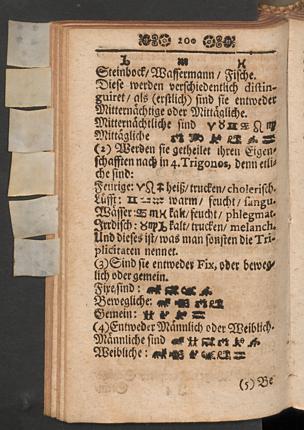 200
♑ ♒ ♓
Steinbock/ Wassermann/ Fische.
Diese werden verschiedentlich distin-
guiret/ als (erstlich) sind sie entweder
Mitternächtige oder Mittägliche.
Mitternächtliche sind ♈ ♉ ♊ ♋ ♌ ♍
Mittägliche
(2) Werden sie getheilet ihren Eigen-
schafften nach in 4. Trigonos, denn etli-
che sind:
Feurige: ♈ ♌ ♐ heiß/ trucken/ cholerisch.
Lüfft: ♊ ♎ ♒ warm/ feucht/ sangu.
Wässer ♋ ♏ ♓ kalt/ feucht/ phlegmat.
Irrdisch: ♉ ♍ ♑ kalt/ trucken/ melanch.
Und dieses ist/ was man sonsten die Tri-
plicitaten nennet.
(3) Sind sie entweder Fix, oder beweg-
lich oder gemein.
Fixe sind:
Bewegliche:
Gemein:
(4) Entweder Männlich oder Weiblich.
Männliche sind
Weibliche:
(5) Be